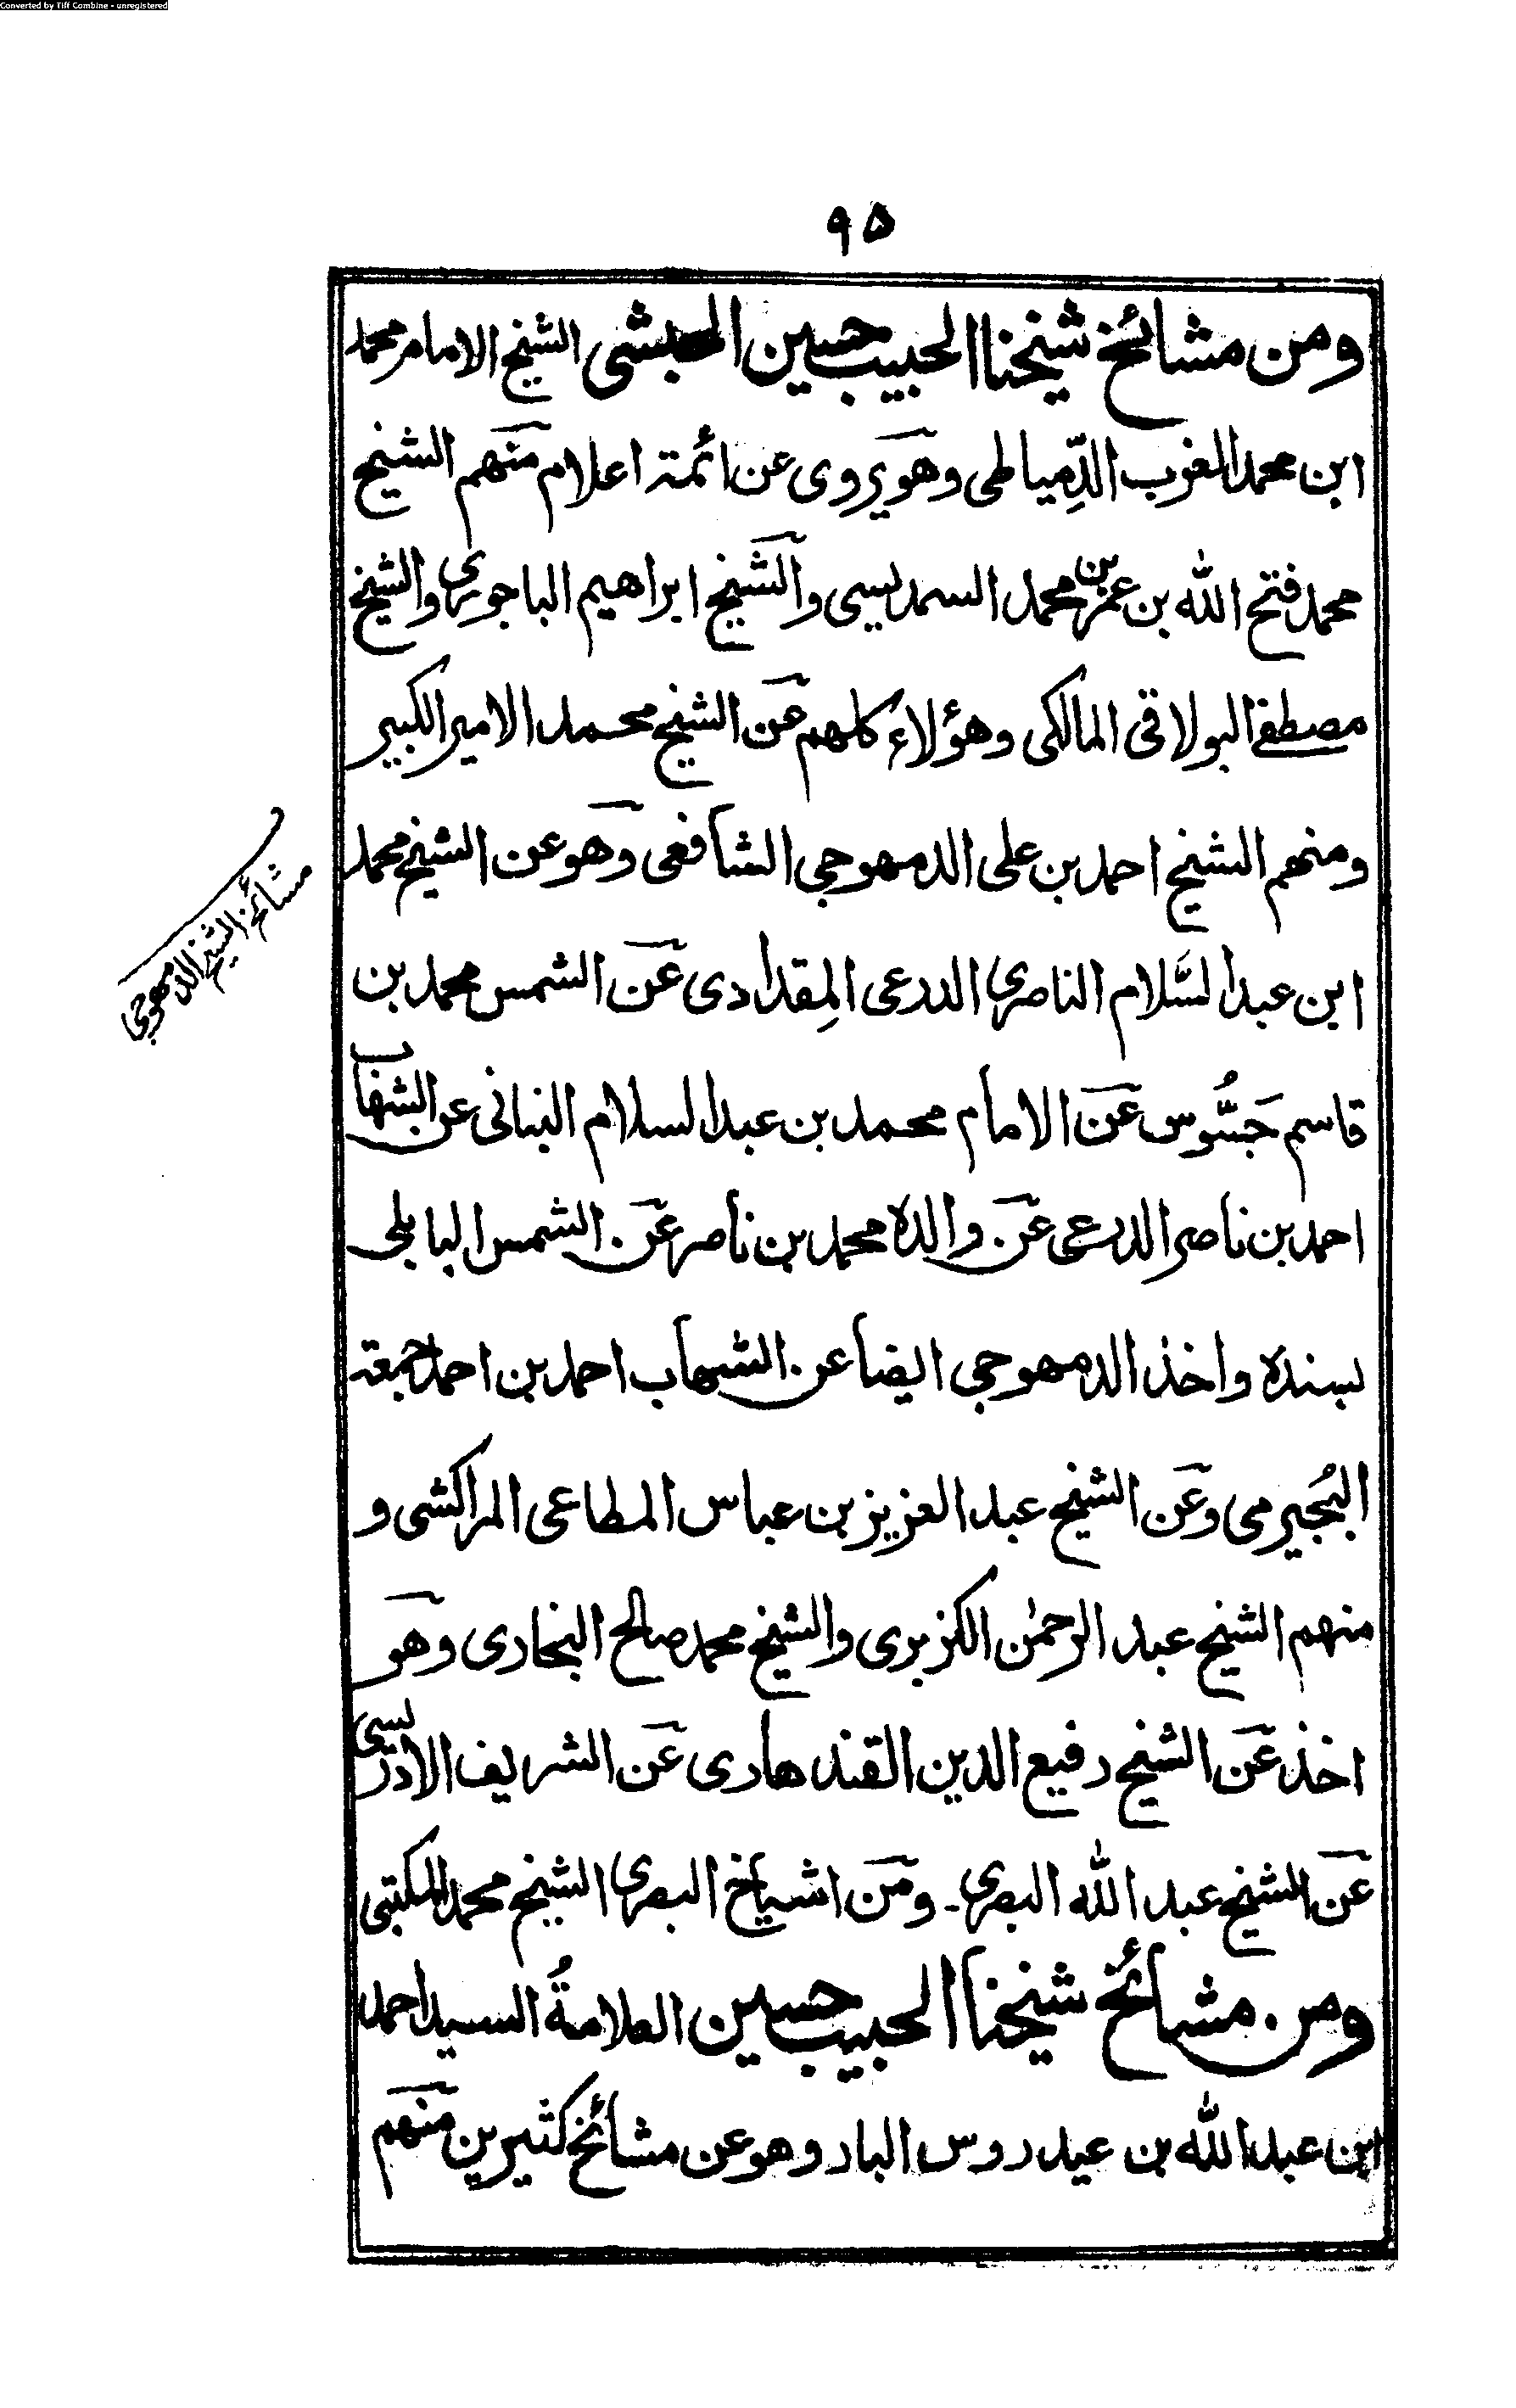 Converted by Tiff Combine - unregistered
٩٥
ومن مشائخ شيخنا الحبيب حسين الحبشى الشيخ الامام محمد
ابن محمد العزب الدِّمياطى وهو يروى عن ائمة اعلام منهم الشيخ
محمد فتح الله بن عمر بن محمد السمديسى والشيخ ابراهيم الباجورى والشيخ
مصطفى البولاقى المالكى وهؤلاء كلهم عن الشيخ محمد الامير الكبير
ومنهم الشيخ احمد بن على الدمهوجى الشافعى وهو عن الشيخ محمد
ابن عبد السَّلام الناصرى الدرعى المِقدادى عن الشمس محمد بن
قاسم جَسُّوس عن الامام محمد بن عبد السلام البنانى عن الشهاب
احمد بن ناصر الدرعى عن والده محمد بن ناصر عن الشمس البابلى
بسنده واخذ الدمهوجى ايضا عن الشهاب احمد بن احمد جمعة
البُجيرمى وعن الشيخ عبد العزيز بن عباس المطاعى المراكشى و
منهم الشيخ عبد الرحمٰن الكزبرى والشيخ محمد صالح البخارى وهو
اخذ عن الشيخ رفيع الدين القندهارى عن الشريف الادريسى
عن الشيخ عبد الله البصرى ۔ ومن اشياخ البصرى الشيخ محمد المكتبى
ومن مشائخ شيخنا الحبيب حسين العلامةُ السيد احمد
ابن عبد الله بن عيدروس البار وهو عن مشائخ كثيرين منهم
مشائخ الشيخ الدمهوجى